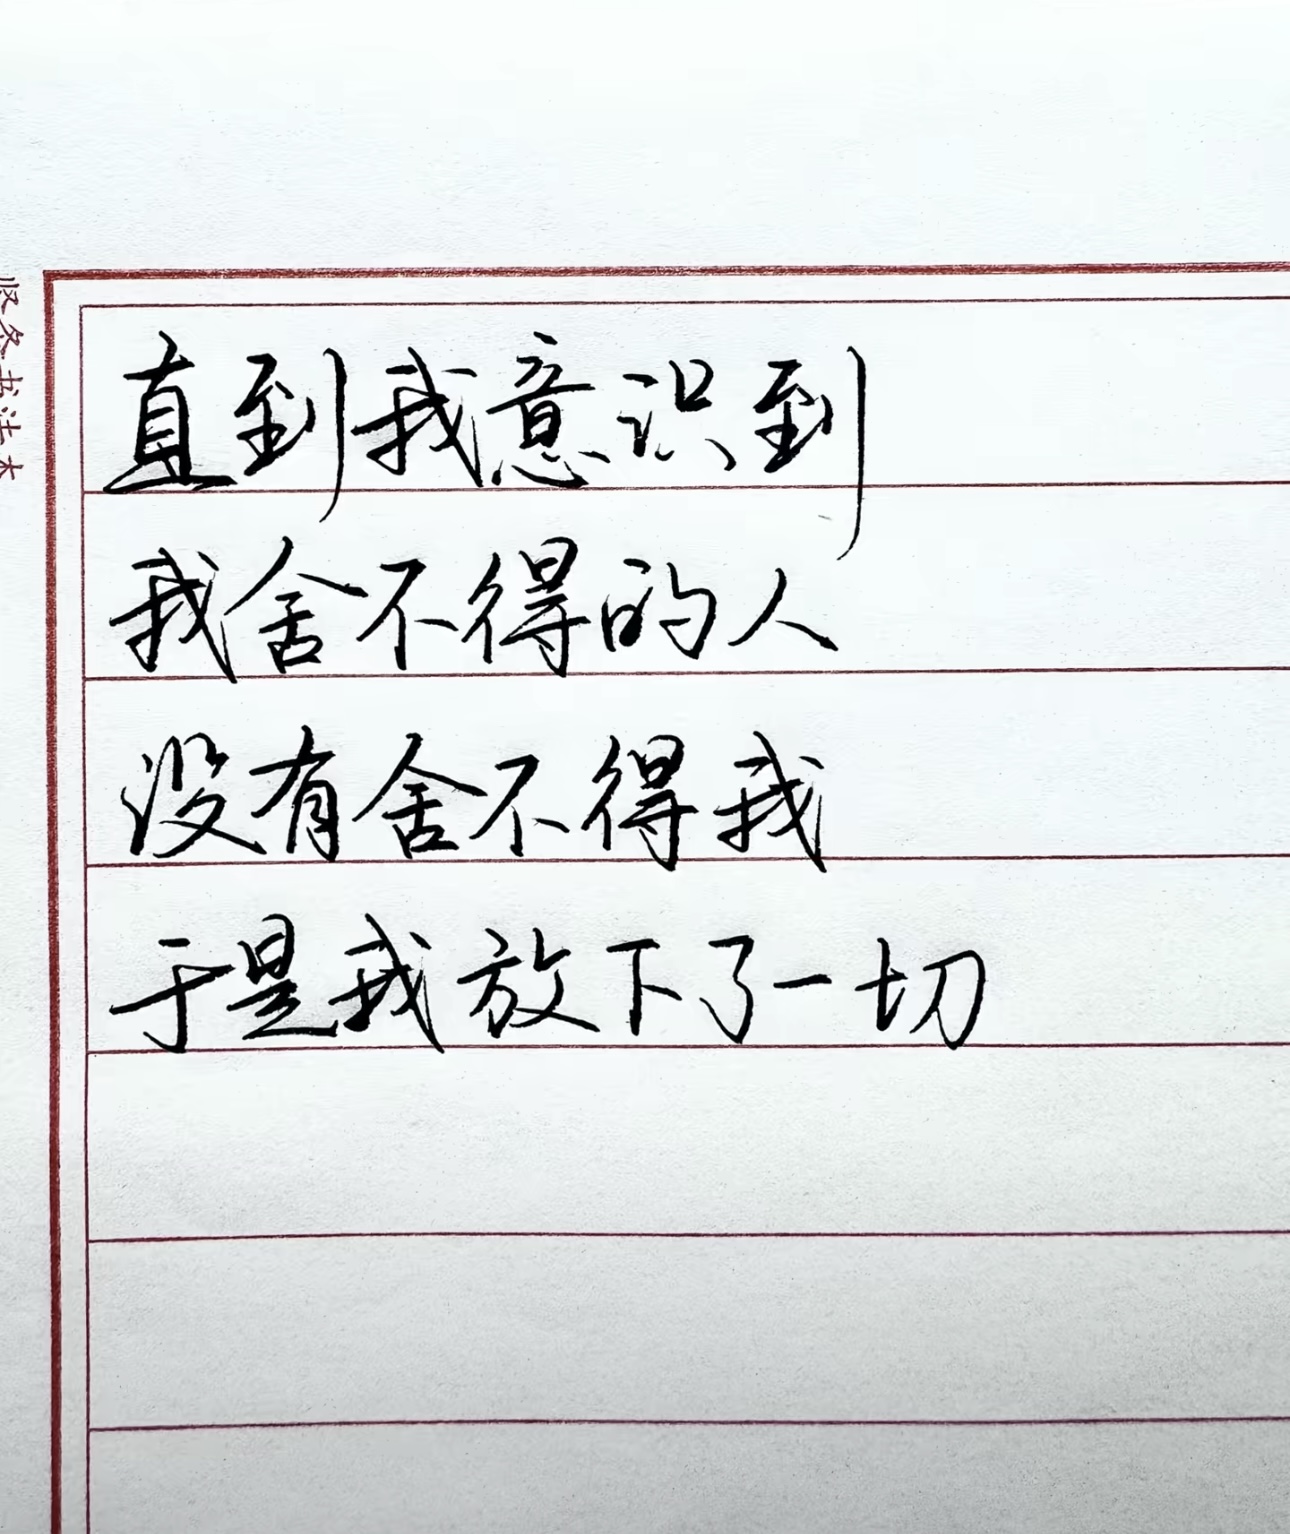 直到我意识到
我舍不得的人
没有舍不得我
于是我放下了一切
竖条书法本